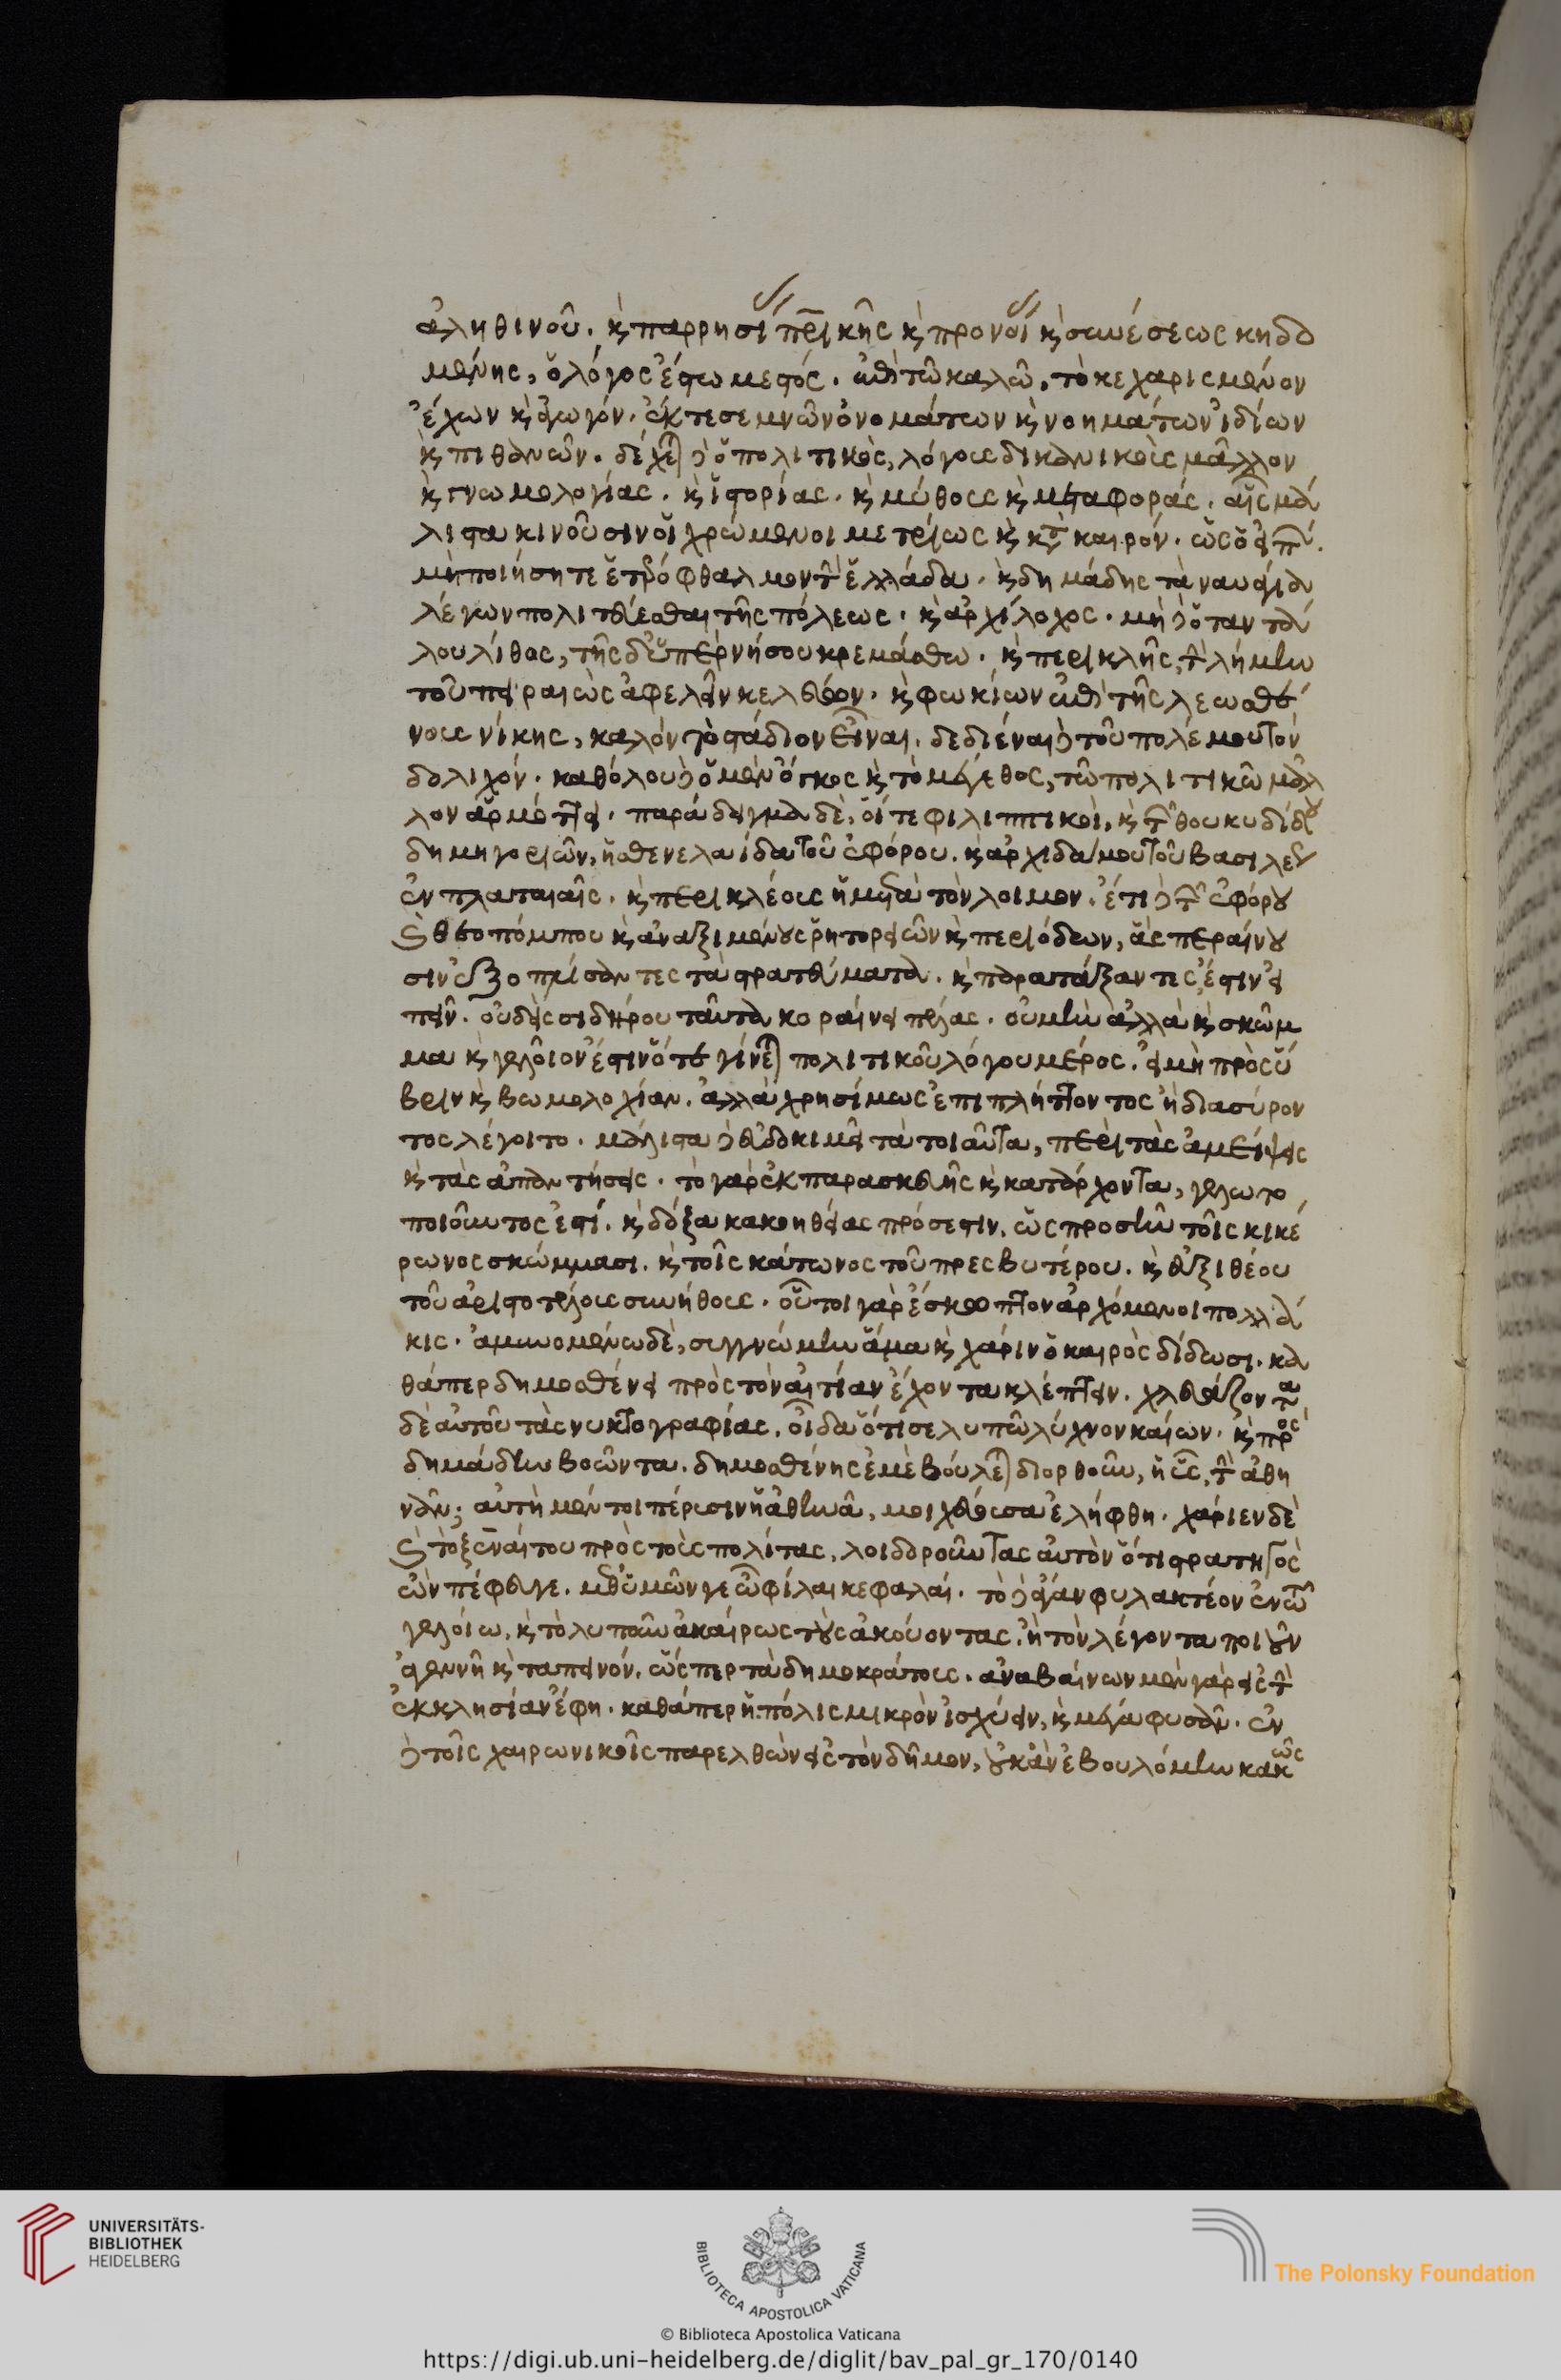 ἀληθινοῦ. καὶ παρρησίας πατρικῆς καὶ προνοίας καὶ συνέσεως κηδο
μένης, ὁ λόγος ἔστω μεστός. ἐπὶ τῶ καλῶ, τὸ κεχαρισμένον
ἔχων καὶ ἀγωγόν. ἔκ τε σεμνῶν ὀνομάτων καὶ νοημάτων ἰδίων
καὶ πιθανῶν. δέχεται δὲ ὁ πολιτικὸς, λόγος δικανικοῦς μᾶλλον
καὶ γνωμολογίας. καὶ ἱστορίας. καὶ μύθους καὶ μεταφοράς. αἷς μά
λιστα κινοῦσιν οἱ χρώμενοι μετρίως καὶ κατὰ καιρόν. ὡς ὁ εἰπών.
μὴ ποιήσητε ἑτερόφθαλμον τὴν ἑλλάδα. καὶ δημάδης τὰ ναυάγια
λέγων πολιτεύεσθαι τῆς πόλεως. καὶ ἀρχίλοχος. μὴ δὲ ὁ ταντά
λου λίθος, τῆς δ' ὑπὲρ νήσου κρεμάσθω. καὶ περικλῆς, τὴν λήμην
τοῦ πειραιὼς ἀφελεῖν κελεύων. καὶ φωκίων ἐπὶ τῆς λεωσθέ
νους νίκης, καλὸν τὸ στάδιον εἶναι. δεδιέναι δὲ τοῦ πολέμου τὸν
δολιχόν. καθόλου δὲ ὁ μὲν ὄγκος καὶ τὸ μέγεθος, τῶ πολιτικῶ μᾶλ
λον ἁρμόττει. παράδειγμα δὲ, οἵ τε φιλιππικοὶ, καὶ τῶν θουκυδίδου
δημηγοριῶν, ἡ σθενελαΐδα τοῦ ἐφόρου. καὶ ἀρχιδάμου τοῦ βασιλέως
ἐν πλαταιαῖς. καὶ περικλέους ἡ μετὰ τὸν λοιμον. ἐπὶ δὲ τῶν ἐφόρου
καὶ θεοπόμπου καὶ ἀναξιμένους ῥητορειῶν καὶ περιόδων, ἃς περαίνου
σιν ἐξοπλίσαντες τὰ στρατεύματα. καὶ παρατάξαντες, ἔστιν εἰ
πεῖν. οὐδεὶς σιδήρου ταῦτα μωραίνει πέλας. οὐ μὴν ἀλλὰ καὶ σκῶμ
μα καὶ γελοῖον ἔστιν ὅτε γίνεται πολιτικοῦ λόγου μέρος. εἰ μὴ πρὸς ὕ
βριν καὶ βωμολοχίαν. ἀλλὰ χρησίμως ἐπιπλήττοντος ἢ διασύρον
τος λέγοιτο. μάλιστα δὲ εὐδοκιμεῖ τὰ τοιαῦτα, περὶ τὰς ἀμείψεις
καὶ τὰς ἀπαντήσεις. τὸ γὰρ ἐκ παρασκευῆς καὶ κατάρχοντα, γελωτο
ποιοῦντος ἐστί. καὶ δόξα κακοηθείας πρόσεστιν. ὡς προσῆν τοῖς κικέ
ρωνος σκώμμασι. καὶ τοῖς κάτωνος τοῦ πρεσβυτέρου. καὶ εὐξιθέου
τοῦ ἀριστοτέλους συνήθους. οὗτοι γὰρ ἔσκωπτον ἀρχόμενοι πολλά
κις. ἀμυνομένω δὲ, συγγνώμην ἅμα καὶ χάριν ὁ καιρὸς δίδωσι. κα
θάπερ δημοσθένει πρὸς τὸν αἰτίαν ἔχοντα κλέπτειν. χλευάζοντα
δὲ αὐτοῦ τὰς νυκτογραφίας. οἶδα ὅτι σε λυπῶ λύχνον καίων. καὶ πρὸς
δημάδην βοῶντα. δημοσθένης ἐμὲ βούλεται διορθοῦν, ἡ ὗς, τὴν ἀθη
νᾶν; αὐτὴ μέντοι πέρυσιν ἡ ἀθηνᾶ, μοιχεύουσα ἐλήφθη. χάριεν δὲ
καὶ τὸ ξεναινέτου πρὸς τοὺς πολίτας, λοιδοροῦντας αὐτὸν ὅτι στρατηγὸς
ὢν πέφευγε. μεθ' ὑμῶν γε ὦ φίλαι κεφαλαί. τὸ δὲ ἄγαν φυλακτέον ἐν τῶ
γελοίω, καὶ τὸ λυποῦν ἀκαίρως τοὺς ἀκούοντας. ἢ τὸν λέγοντα ποιοῦν
ἀγεννῆ καὶ ταπεινόν. ὥσπερ τὰ δημοκράτους. ἀναβαίνων μὲν γὰρ εἰς τὴν
ἐκκλησίαν ἔφη. καθάπερ ἡ πόλις μικρὸν ἰσχύειν, καὶ μέγα φυσᾶν. ἐν
δὲ τοῖς χαιρωνικοῖς παρελθὼν εἰς τὸν δῆμον, οὐκ ἂν ἐβουλόμην κακῶς
UNIVERSITÄTS-
BIBLIOTHEK
HEIDELBERG
BIBLIOTECA APOSTOLICA VATICANA
The Polonsky Foundation
© Biblioteca Apostolica Vaticana
https://digi.ub.uni-heidelberg.de/diglit/bav_pal_gr_170/0140